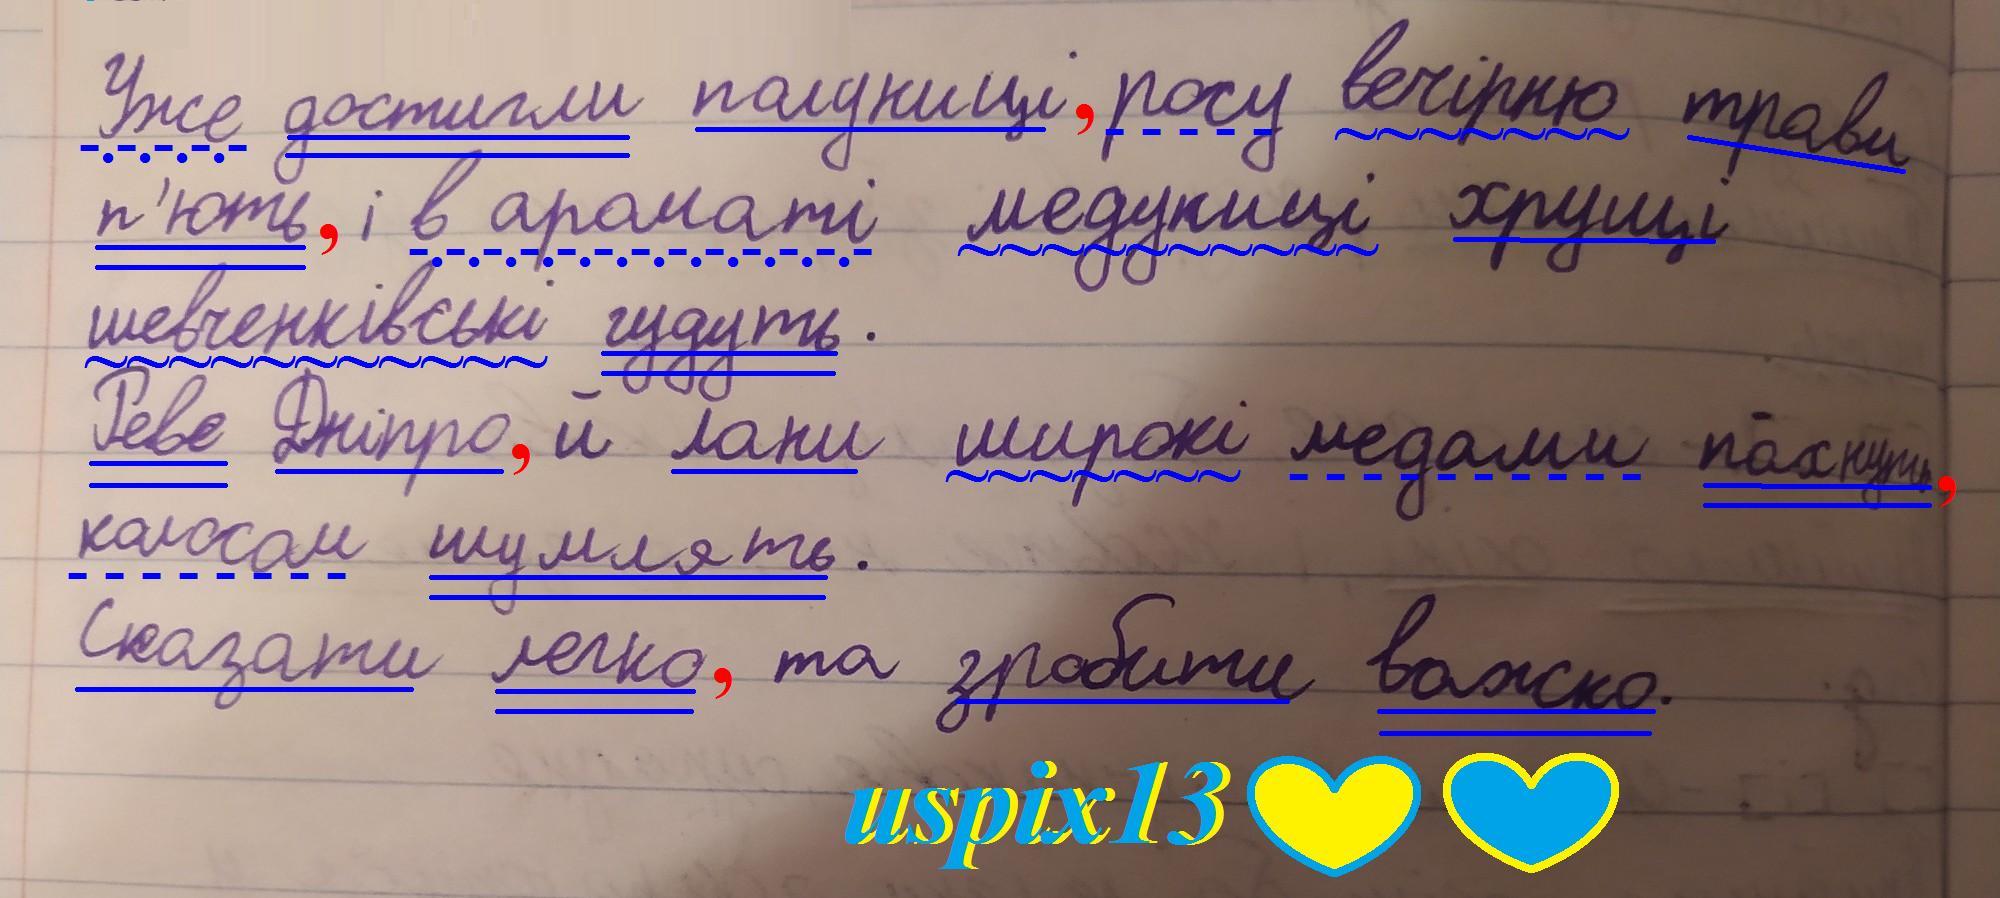 Уже достигли полуниці, росу вечірню трави
п'ють, і в ароматі медуниці хрущі
шевченківські гудуть.
Реве Дніпро, й лани широкі медами пахнуть,
колосом шумлять.
Сказати легко, та зробити важко.
uspix13